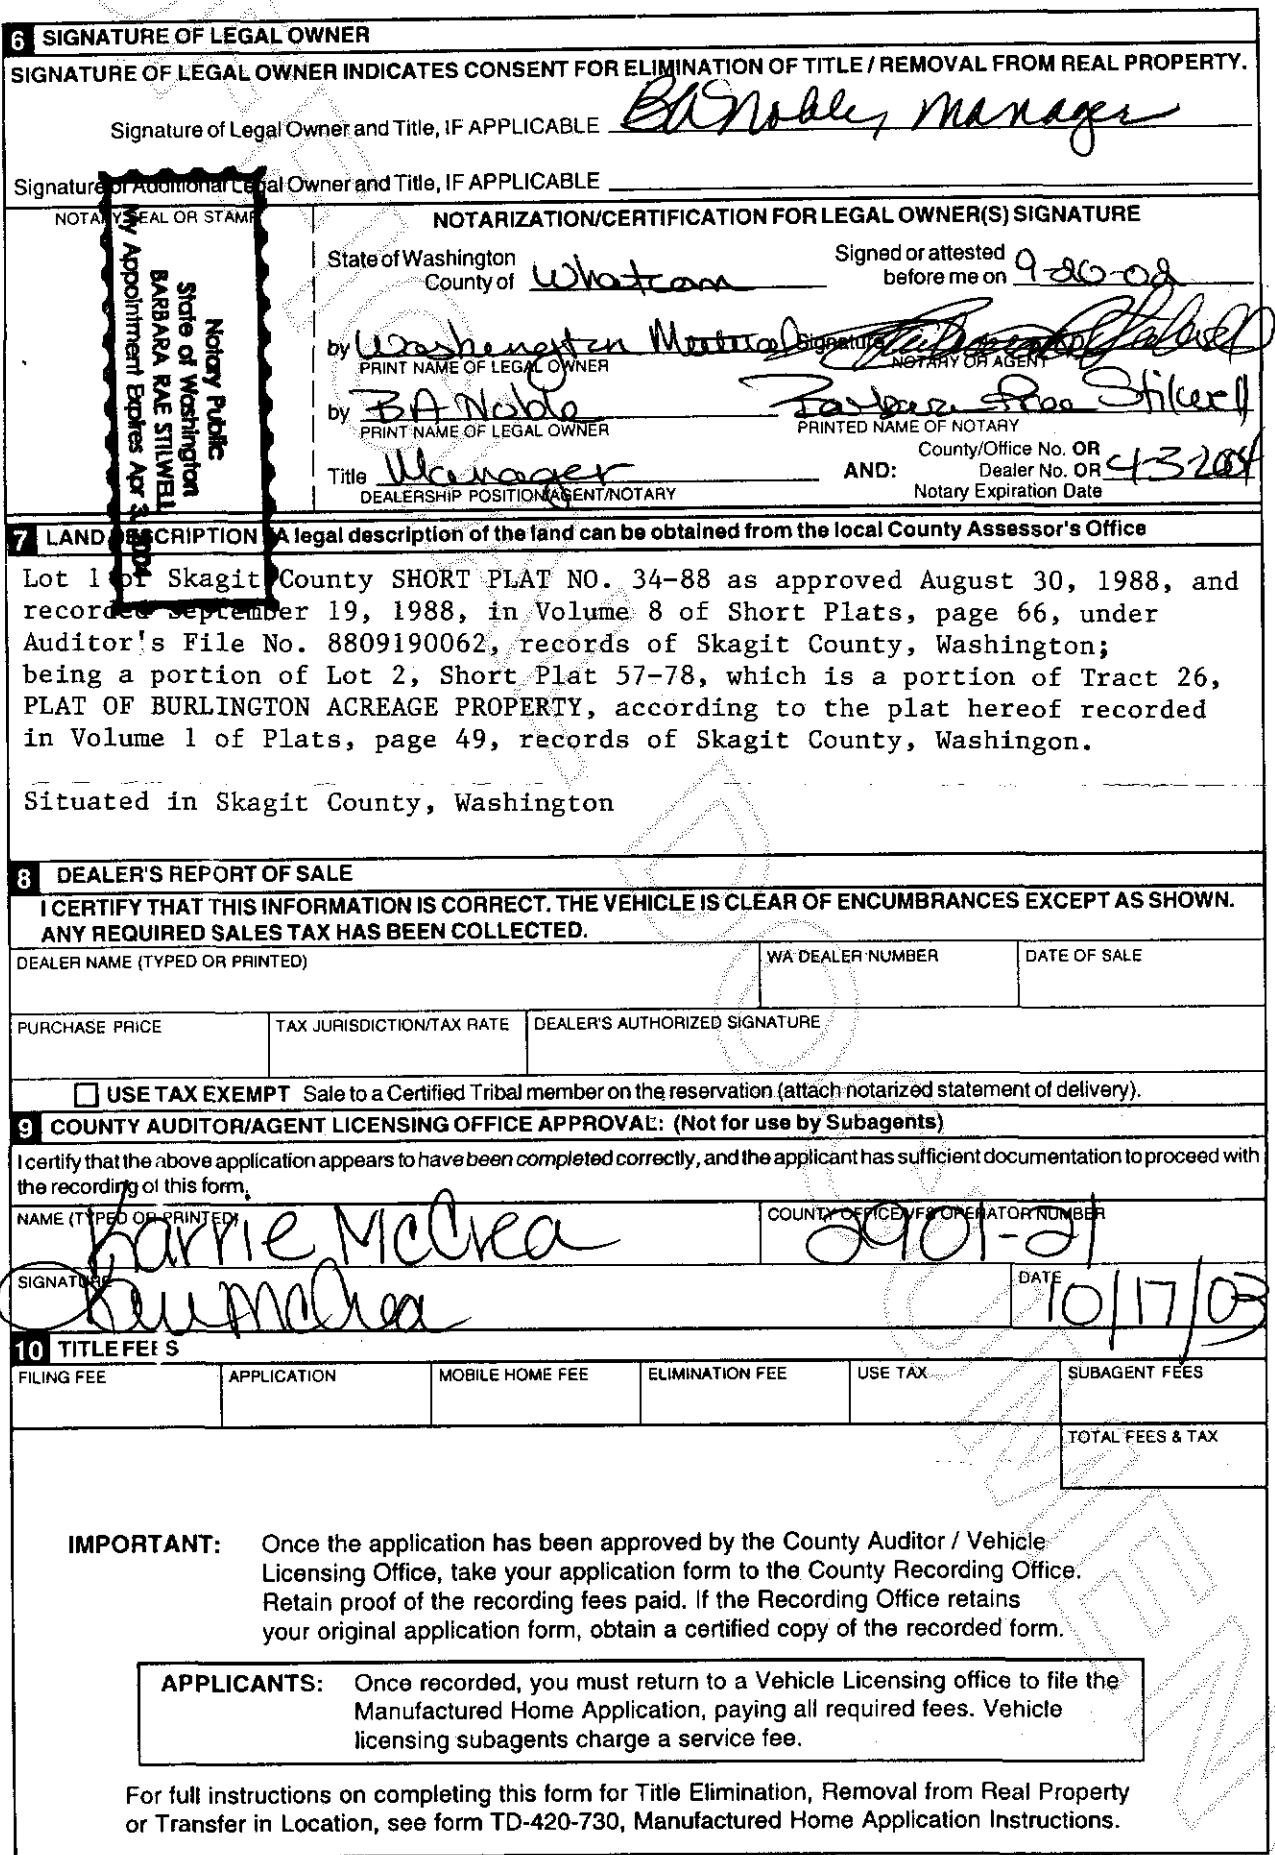 6 SIGNATURE OF LEGAL OWNER
SIGNATURE OF LEGAL OWNER INDICATES CONSENT FOR ELIMINATION OF TITLE / REMOVAL FROM REAL PROPERTY.
Signature of Legal Owner and Title, IF APPLICABLE BA Noble, Manager
Signature of Additional Legal Owner and Title, IF APPLICABLE
NOTARY SEAL OR STAMP
Notary Public
State of Washington
BARBARA RAE STILWELL
My Appointment Expires Apr 3, 2004
NOTARIZATION/CERTIFICATION FOR LEGAL OWNER(S) SIGNATURE
State of Washington
County of Whatcom
Signed or attested
before me on 9-26-02
by Washington Mutual Signature
PRINT NAME OF LEGAL OWNER NOTARY OR AGENT
by BA Noble Barbara Rae Stilwell
PRINT NAME OF LEGAL OWNER PRINTED NAME OF NOTARY
Title Manager
DEALERSHIP POSITION/AGENT/NOTARY
AND: County/Office No. OR
Dealer No. OR 4-3-2004
Notary Expiration Date
7 LAND DESCRIPTION A legal description of the land can be obtained from the local County Assessor's Office
Lot 1 of Skagit County SHORT PLAT NO. 34-88 as approved August 30, 1988, and
recorded September 19, 1988, in Volume 8 of Short Plats, page 66, under
Auditor's File No. 8809190062, records of Skagit County, Washington;
being a portion of Lot 2, Short Plat 57-78, which is a portion of Tract 26,
PLAT OF BURLINGTON ACREAGE PROPERTY, according to the plat hereof recorded
in Volume 1 of Plats, page 49, records of Skagit County, Washingon.
Situated in Skagit County, Washington
8 DEALER'S REPORT OF SALE
I CERTIFY THAT THIS INFORMATION IS CORRECT. THE VEHICLE IS CLEAR OF ENCUMBRANCES EXCEPT AS SHOWN.
ANY REQUIRED SALES TAX HAS BEEN COLLECTED.
DEALER NAME (TYPED OR PRINTED) WA DEALER NUMBER DATE OF SALE
PURCHASE PRICE TAX JURISDICTION/TAX RATE DEALER'S AUTHORIZED SIGNATURE
USE TAX EXEMPT Sale to a Certified Tribal member on the reservation (attach notarized statement of delivery).
9 COUNTY AUDITOR/AGENT LICENSING OFFICE APPROVAL: (Not for use by Subagents)
I certify that the above application appears to have been completed correctly, and the applicant has sufficient documentation to proceed with
the recording of this form.
NAME (TYPED OR PRINTED) COUNTY OFFICE/VFS OPERATOR NUMBER
Karrie McCrea 2901-21
SIGNATURE DATE
10/17/03
10 TITLE FEES
FILING FEE APPLICATION MOBILE HOME FEE ELIMINATION FEE USE TAX SUBAGENT FEES
TOTAL FEES & TAX
IMPORTANT: Once the application has been approved by the County Auditor / Vehicle
Licensing Office, take your application form to the County Recording Office.
Retain proof of the recording fees paid. If the Recording Office retains
your original application form, obtain a certified copy of the recorded form.
APPLICANTS: Once recorded, you must return to a Vehicle Licensing office to file the
Manufactured Home Application, paying all required fees. Vehicle
licensing subagents charge a service fee.
For full instructions on completing this form for Title Elimination, Removal from Real Property
or Transfer in Location, see form TD-420-730, Manufactured Home Application Instructions.